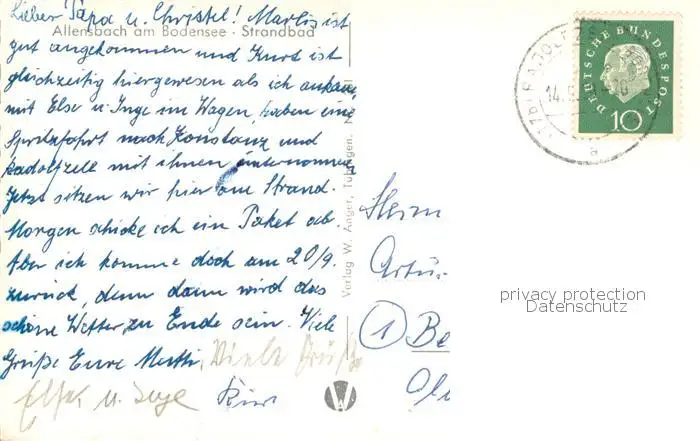 Lieber Papa u. Christel! Marlis ist
Allensbach am Bodensee · Strandbad
gut angekommen und Kurt ist
gleichzeitig hiergewesen als ich ankam
mit Else u. Inge im Wagen, haben eine
Spritzfahrt nach Konstanz und
Radolfzell mit ihnen unternommen
Jetzt sitzen wir hier am Strand.
Morgen schicke ich ein Paket ab.
Aber ich komme doch am 20/9.
zurück, denn dann wird das
schöne Wetter zu Ende sein. Viele
Grüße Eure Mutti, Viele Grüße
Else u. Inge Kurt
Verlag W. Anger, Tübingen.
W
DEUTSCHE BUNDESPOST
10
RADOLFZELL
14.
a
Herrn
Artur
1 Be
privacy protection
Datenschutz